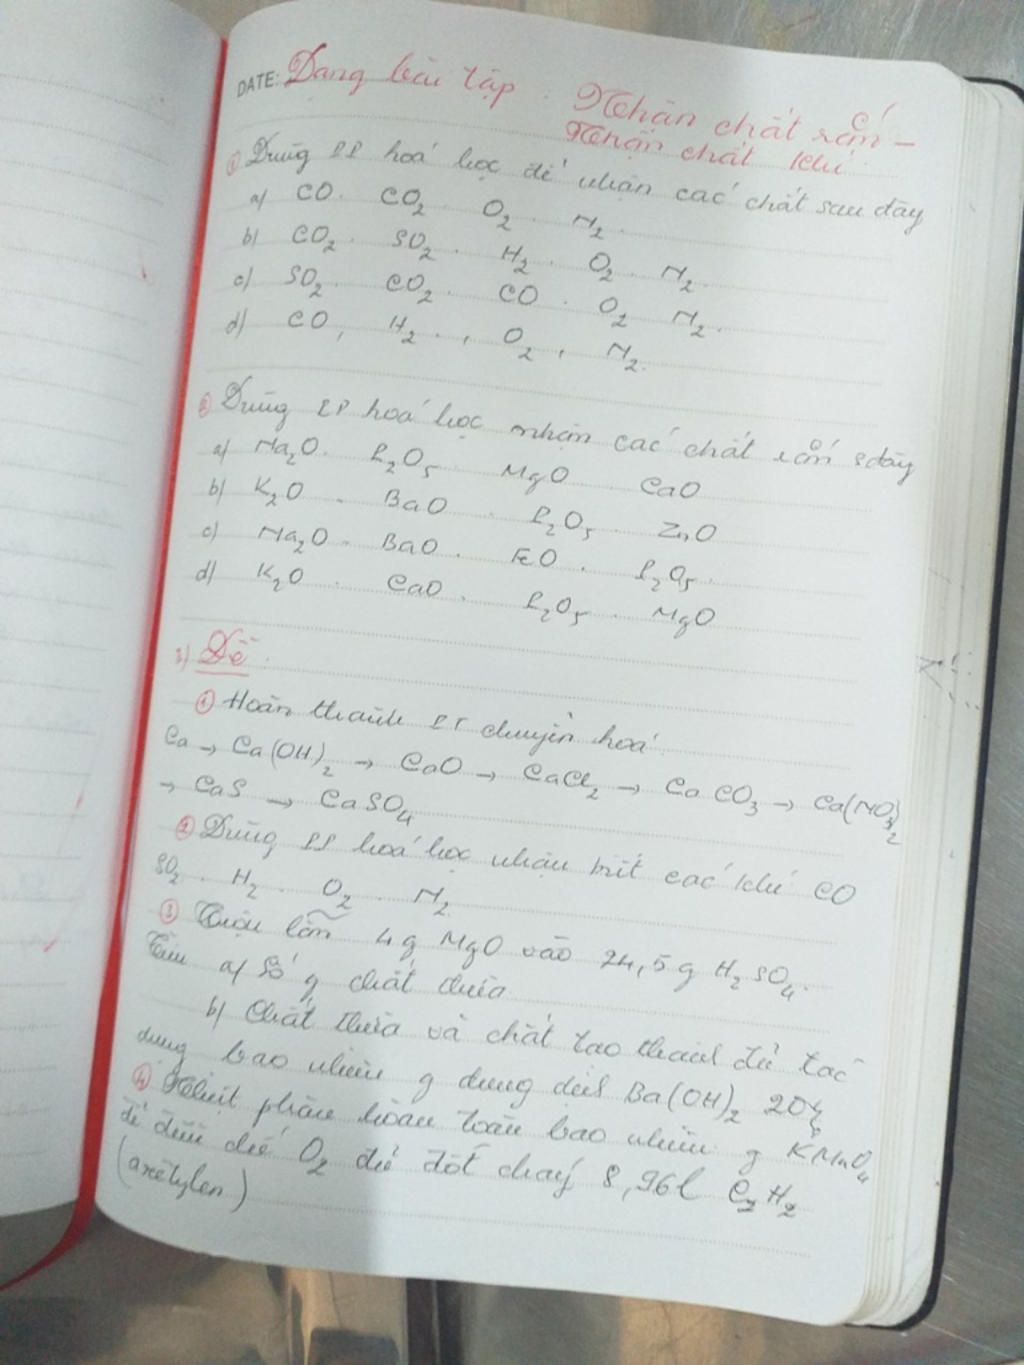 DATE: Dạng bài tập : Nhận chất rắn –
Nhận chất khí
① Dùng PP hoá học để nhận các chất sau đây
a) CO. CO2. O2. N2.
b) CO2. SO2. H2. O2. N2.
c) SO2. CO2. CO. O2 N2.
d) CO, H2, O2, N2.
② Dùng PP hoá học nhận các chất rắn sđây
a) Na2O. P2O5. MgO CaO
b) K2O. BaO. P2O5. ZnO
c) Na2O. BaO. FeO. P2O5.
d) K2O. CaO. P2O5. MgO
3) Đề.
① Hoàn thành PT chuyển hoá
Ca → Ca(OH)2 → CaO → CaCl2 → CaCO3 → Ca(NO3)2
→ CaS → CaSO4
② Dùng PP hoá học nhận biết các khí CO
SO2. H2. O2. N2
③ Trộn lẫn 4g MgO vào 24,5g H2SO4.
Tìm a) Số g chất thừa
b) Chất thừa và chất tạo thành đủ tác
dụng bao nhiêu g dung dịch Ba(OH)2 20%
④ Nhiệt phân hoàn toàn bao nhiêu g KMnO4
để điều chế O2 đủ đốt cháy 8,96l C2H2
(axêtylen)